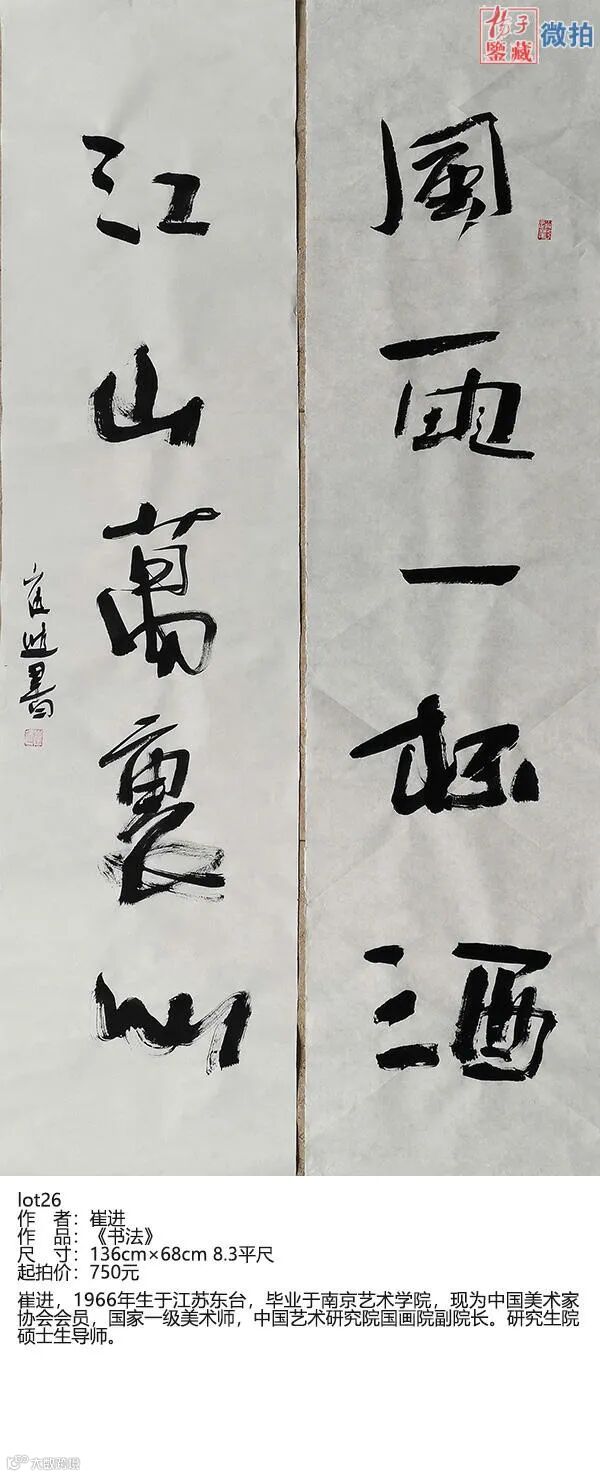 揚子
鑒藏
微拍
風雨一杯酒
江山萬裏心
崔進書
lot26
作 者：崔进
作 品：《书法》
尺 寸：136cm×68cm 8.3平尺
起拍价：750元
崔进，1966年生于江苏东台，毕业于南京艺术学院，现为中国美术家
协会会员，国家一级美术师，中国艺术研究院国画院副院长。研究生院
硕士生导师。
大数跨境